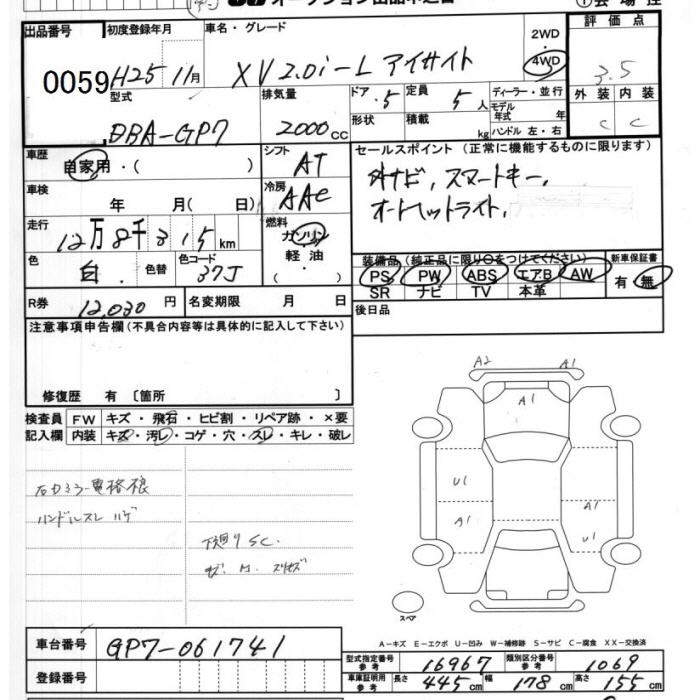 オークション出品申込書
出品番号 初度登録年月 車名・グレード 2WD 評価点
0059 H25 11月 XV 2.0i-L アイサイト 4WD 3.5
型式 排気量 ドア・5 定員 5人 ディーラー・並行 外装 内装
DBA-GP7 2000cc 形状 積載 kg モデル年式 年 C C
ハンドル 左・右
車歴 自家用・( ) シフト AT セールスポイント (正常に機能するものに限ります)
車検 年 月( 日) 冷房 AAC 外ナビ, スマートキー,
走行 12万8千315km 燃料 ガソリン オートヘッドライト,
色 白 色替 色コード 37J 軽油 ・( )
装備品 (純正品に限り○をつけてください) 新車保証書
PS PW ABS エアB AW 有 無
SR ナビ TV 本革
R券 12,030円 名変期限 月 日 後日品
注意事項申告欄(不具合内容等は具体的に記入して下さい)
修復歴 有 〔箇所 〕
検査員 FW キズ・飛石・ヒビ割・リペア跡・×要
記入欄 内装 キズ・汚レ・コゲ・穴・スレ・キレ・破レ
A2 A1
A1
スペア
U1 A1
A1 U1
右カミラー電格狼
ハンドルスレ ハゲ
下廻りSC.
スペア
A-キズ E-エクボ U-凹み W-補修跡 S-サビ C-腐食 XX-交換済
車台番号 GP7-061741
型式指定番号 参考 16967 類別区分番号 参考 1069
登録番号 車庫証明用 参考 長さ 445cm 幅 178cm 高さ 155cm